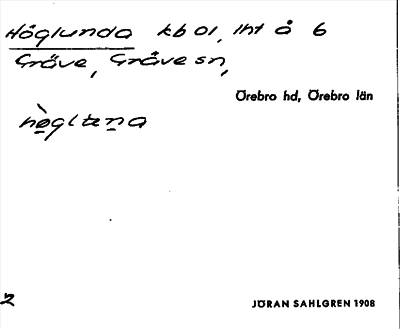 Höglunda kb 01, lht å 6
Gräve, Gräve sn,
Örebro hd, Örebro län
hø̀gltæna
2
JÖRAN SAHLGREN 1908